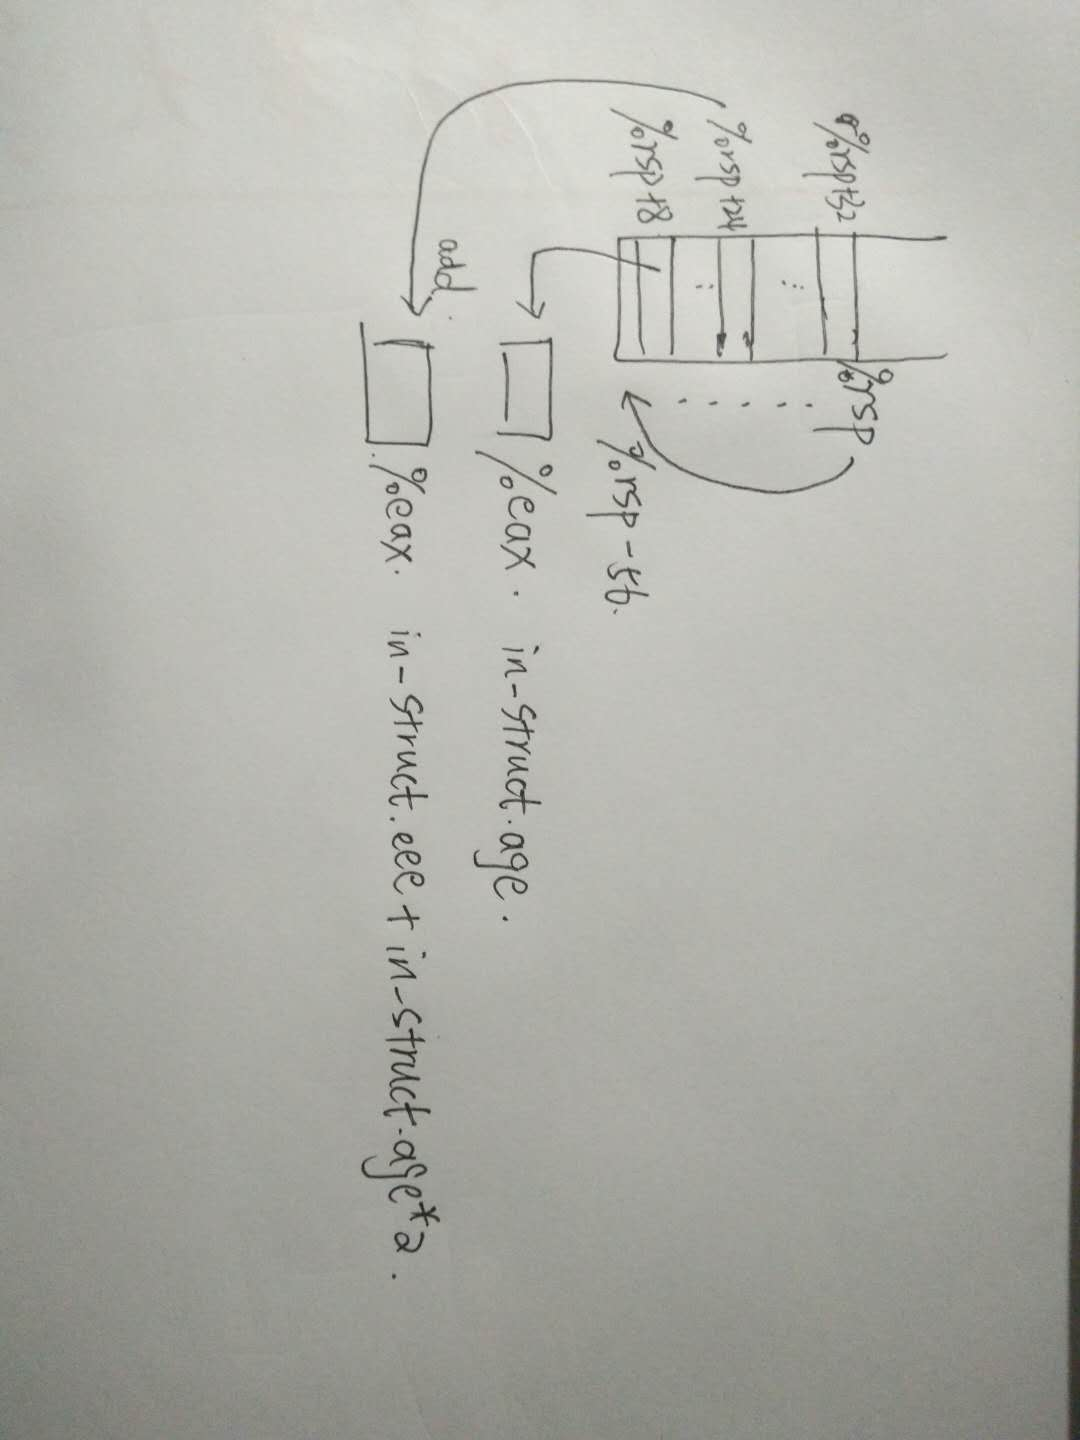 %rsp+32
%rsp
%rsp+24
%rsp+8
%rsp-56.
%eax. in-struct.age.
add.
%eax. in-struct.eee + in-struct.age*2.